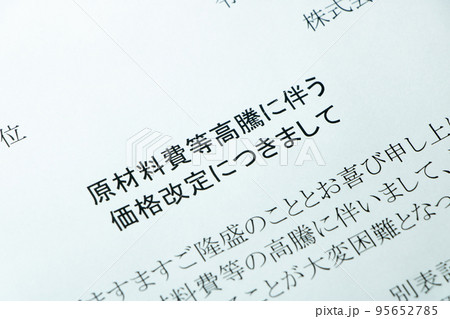 株式会
位
原材料費等高騰に伴う
価格改定につきまして
ますますご隆盛のこととお喜び申し上
材料費等の高騰に伴いまして、
ことが大変困難となっ
別表記
PIXTA
pixta.jp - 95652785